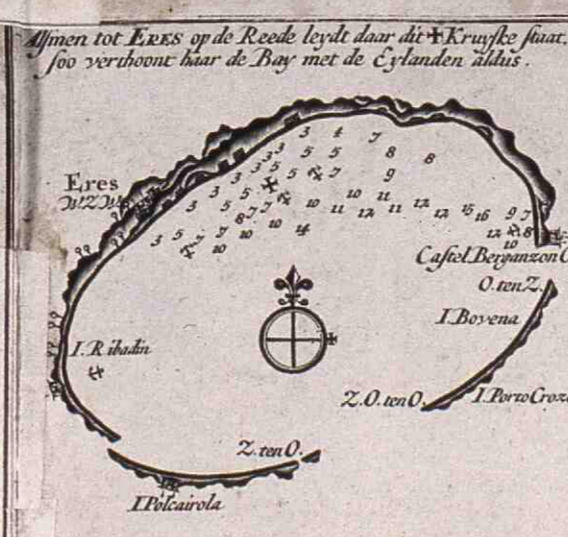 Alsmen tot ERES op de Reede leydt daar dit ✠ Kruyske staat,
soo verthoont haar de Bay met de Eylanden aldus.
3 4 7
3 5 5 8 8
3 5 5 7 9
3 5 10 11
3 5 7 7 10 11 12 11 12 12 15 16 9 7
3 5 7 7 8 10 10 14 12 8
10 10 10
Eres
WZW
Castel Berganzon
O. ten Z.
I. Boyena
I. Ribadin
Z.O. ten O.
I. Porto Croz
Z. ten O.
I. Polcairola